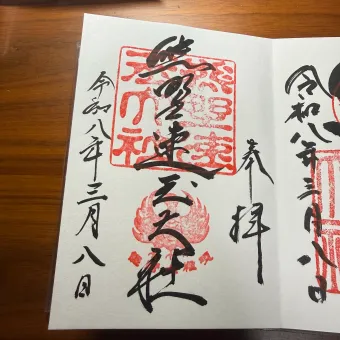 奉拝
熊野速玉大社
令和八年三月八日
令和八年三月八日